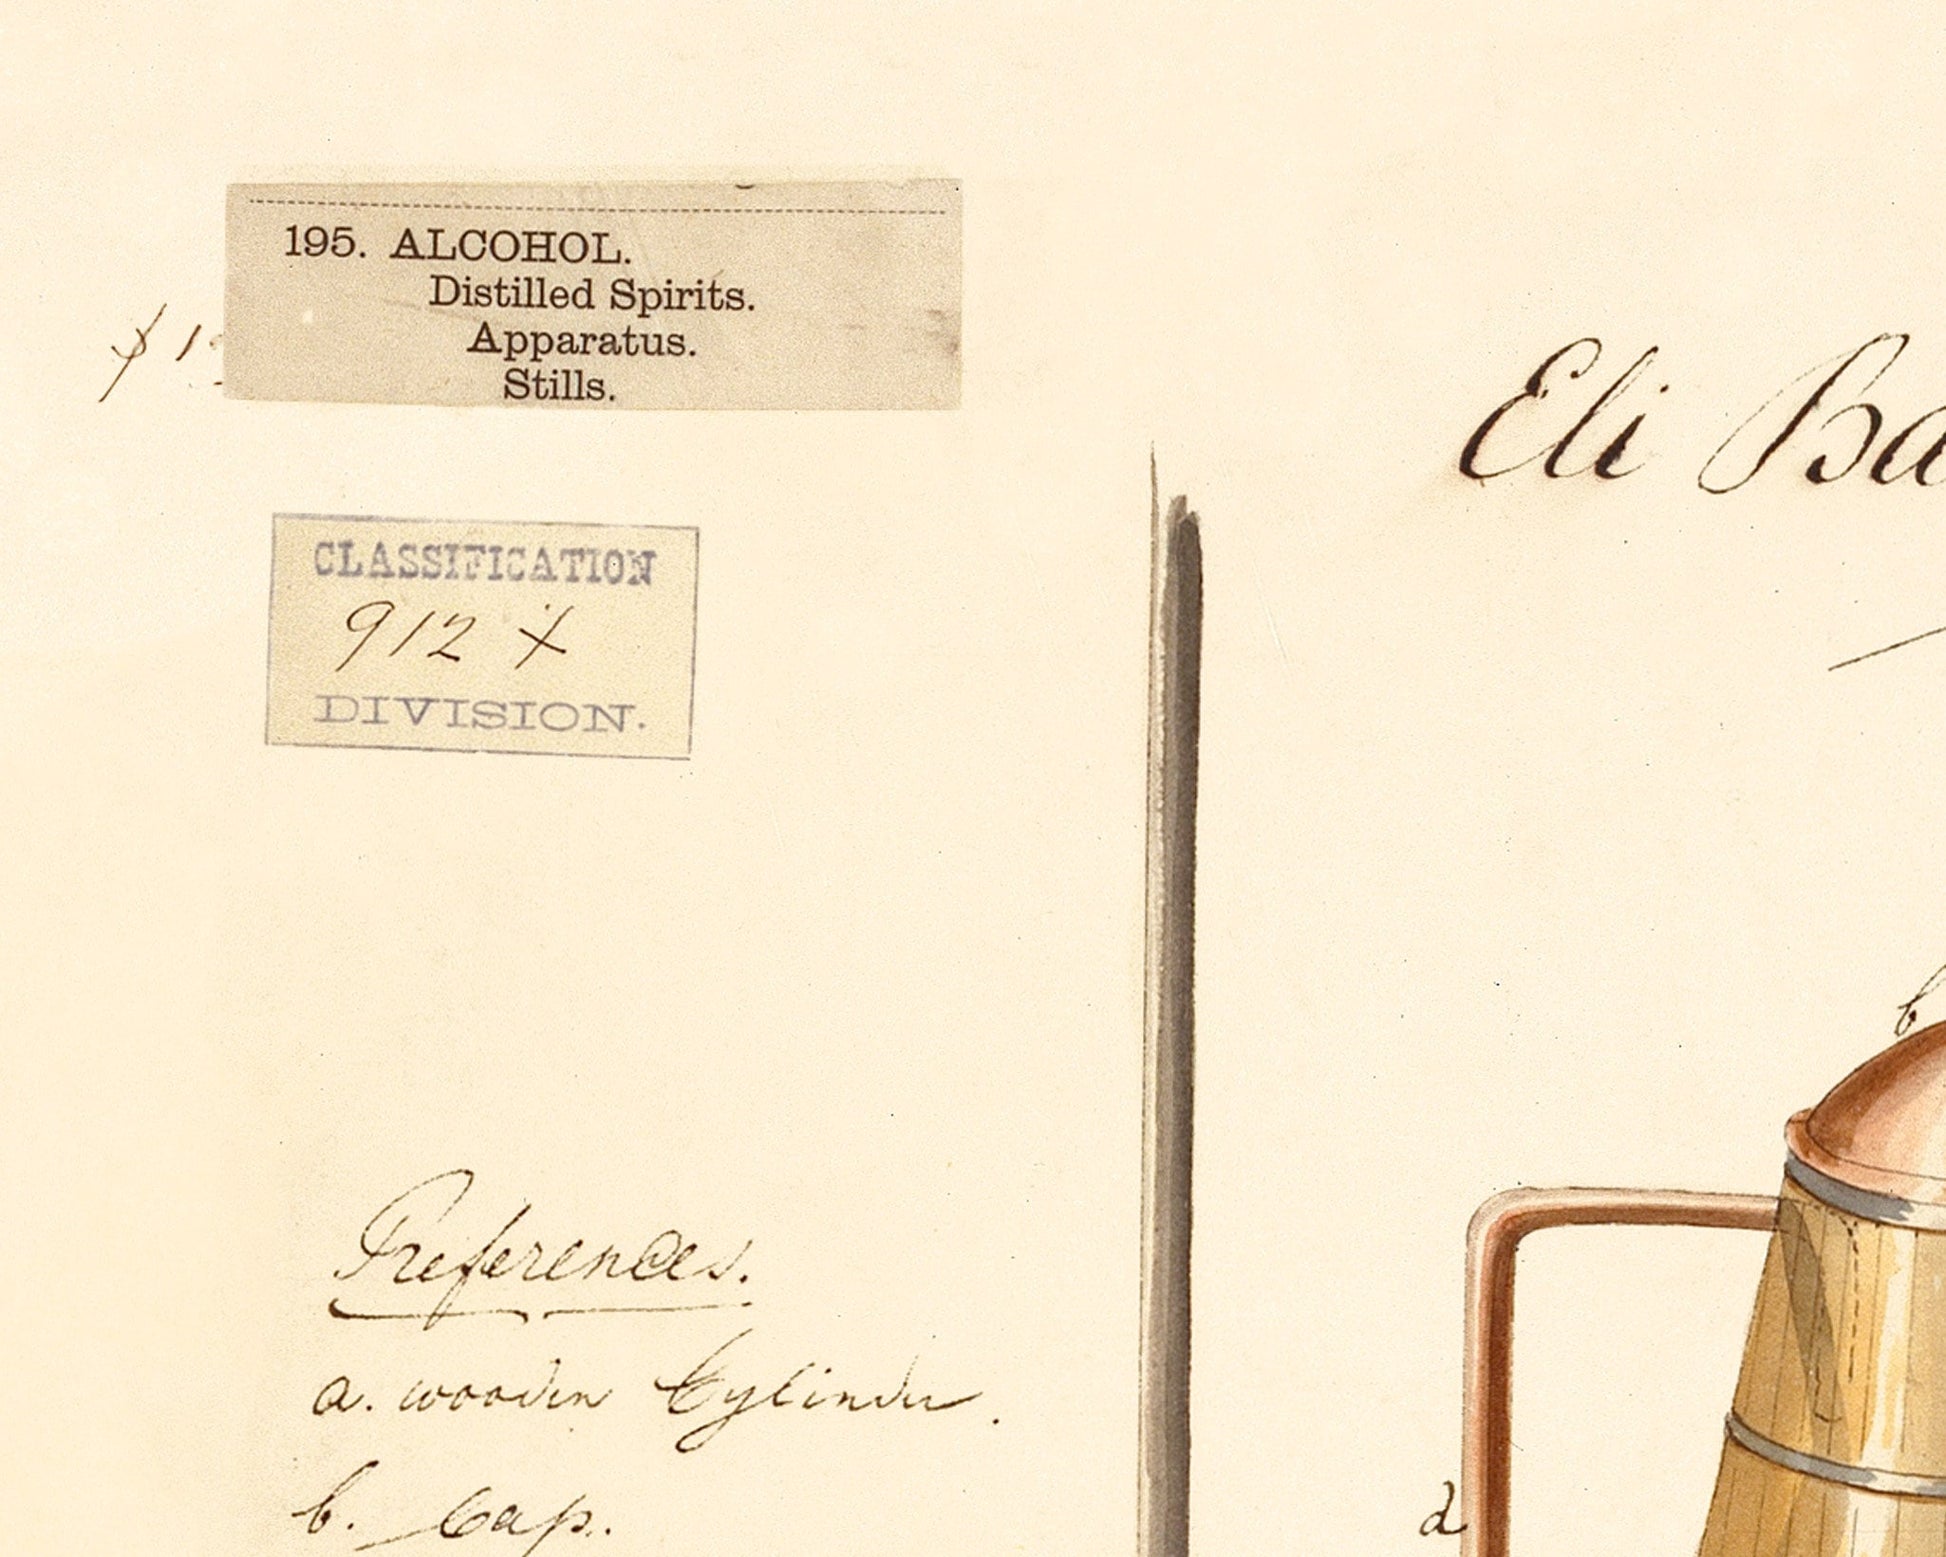 195. ALCOHOL.
Distilled Spirits.
Apparatus.
Stills.
$1
CLASSIFICATION
912 X
DIVISION.
Eli Ba
References.
a. wooden Cylinder.
b. Cap.
b
d